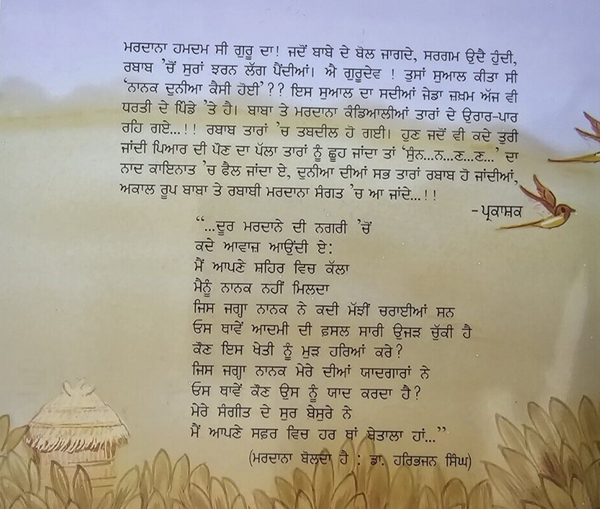 ਮਰਦਾਨਾ ਹਮਦਮ ਸੀ ਗੁਰੂ ਦਾ! ਜਦੋਂ ਬਾਬੇ ਦੇ ਬੋਲ ਜਾਗਦੇ, ਸਰਗਮ ਉਦੈ ਹੁੰਦੀ,
ਰਬਾਬ 'ਚੋਂ ਸੁਰਾਂ ਝਰਨ ਲੱਗ ਪੈਂਦੀਆਂ। ਐ ਗੁਰੂਦੇਵ ! ਤੁਸਾਂ ਸੁਆਲ ਕੀਤਾ ਸੀ
'ਨਾਨਕ ਦੁਨੀਆ ਕੈਸੀ ਹੋਈ'?? ਇਸ ਸੁਆਲ ਦਾ ਸਦੀਆਂ ਜੇਡਾ ਜ਼ਖ਼ਮ ਅੱਜ ਵੀ
ਧਰਤੀ ਦੇ ਪਿੰਡੇ 'ਤੇ ਹੈ। ਬਾਬਾ ਤੇ ਮਰਦਾਨਾ ਕੰਡਿਆਲੀਆਂ ਤਾਰਾਂ ਦੇ ਉਰਾਰ-ਪਾਰ
ਰਹਿ ਗਏ...!! ਰਬਾਬ ਤਾਰਾਂ 'ਚ ਤਬਦੀਲ ਹੋ ਗਈ। ਹੁਣ ਜਦੋਂ ਵੀ ਕਦੇ ਤੁਰੀ
ਜਾਂਦੀ ਪਿਆਰ ਦੀ ਪੌਣ ਦਾ ਪੱਲਾ ਤਾਰਾਂ ਨੂੰ ਛੂਹ ਜਾਂਦਾ ਤਾਂ 'ਸੁੰਨ...ਨ...ਣ...ਣ...' ਦਾ
ਨਾਦ ਕਾਇਨਾਤ 'ਚ ਫੈਲ ਜਾਂਦਾ ਏ, ਦੁਨੀਆ ਦੀਆਂ ਸਭ ਤਾਰਾਂ ਰਬਾਬ ਹੋ ਜਾਂਦੀਆਂ,
ਅਕਾਲ ਰੂਪ ਬਾਬਾ ਤੇ ਰਬਾਬੀ ਮਰਦਾਨਾ ਸੰਗਤ 'ਚ ਆ ਜਾਂਦੇ...!!
-ਪ੍ਰਕਾਸ਼ਕ
"...ਦੂਰ ਮਰਦਾਨੇ ਦੀ ਨਗਰੀ 'ਚੋਂ
ਕਦੇ ਆਵਾਜ਼ ਆਉਂਦੀ ਏ:
ਮੈਂ ਆਪਣੇ ਸ਼ਹਿਰ ਵਿਚ ਕੱਲਾ
ਮੈਨੂੰ ਨਾਨਕ ਨਹੀਂ ਮਿਲਦਾ
ਜਿਸ ਜਗ੍ਹਾ ਨਾਨਕ ਨੇ ਕਦੀ ਮੱਝੀਂ ਚਰਾਈਆਂ ਸਨ
ਓਸ ਥਾਵੇਂ ਆਦਮੀ ਦੀ ਫ਼ਸਲ ਸਾਰੀ ਉਜੜ ਚੁੱਕੀ ਹੈ
ਕੌਣ ਇਸ ਖੇਤੀ ਨੂੰ ਮੁੜ ਹਰਿਆਂ ਕਰੇ?
ਜਿਸ ਜਗ੍ਹਾ ਨਾਨਕ ਮੇਰੇ ਦੀਆਂ ਯਾਦਗਾਰਾਂ ਨੇ
ਓਸ ਥਾਵੇਂ ਕੌਣ ਉਸ ਨੂੰ ਯਾਦ ਕਰਦਾ ਹੈ?
ਮੇਰੇ ਸੰਗੀਤ ਦੇ ਸੁਰ ਬੇਸੁਰੇ ਨੇ
ਮੈਂ ਆਪਣੇ ਸਫ਼ਰ ਵਿਚ ਹਰ ਥਾਂ ਬੇਤਾਲਾ ਹਾਂ..."
(ਮਰਦਾਨਾ ਬੋਲਦਾ ਹੈ : ਡਾ. ਹਰਿਭਜਨ ਸਿੰਘ)